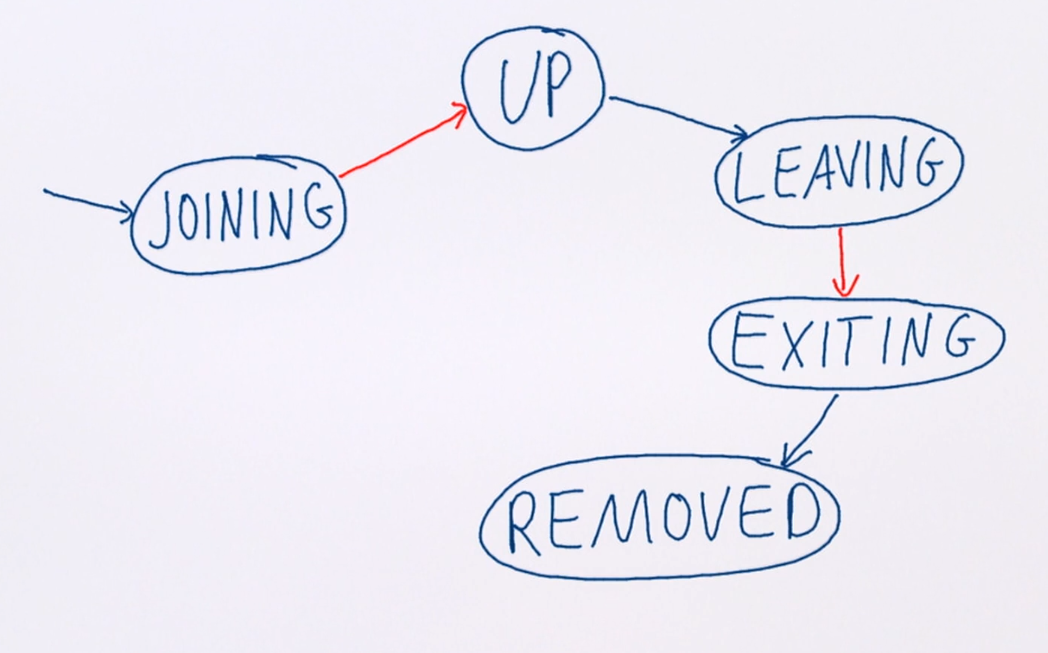 JOINING
UP
LEAVING
EXITING
REMOVED